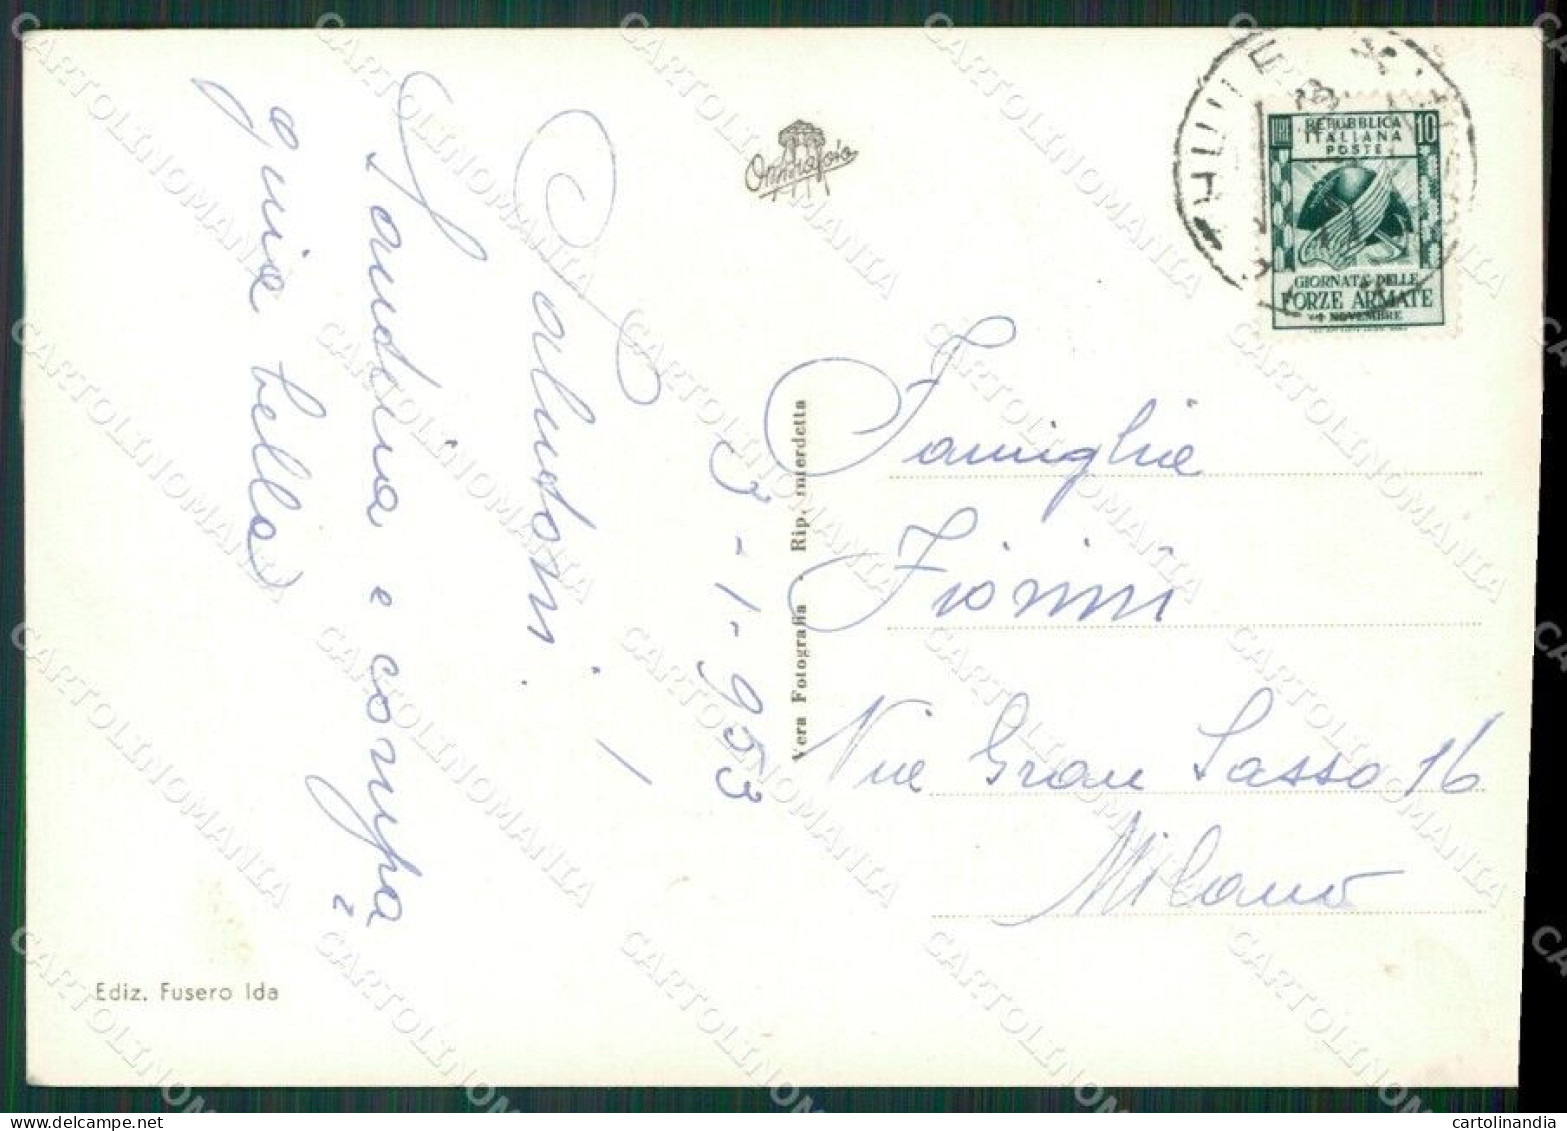 Saludoni !
Sandrina e compa
gnia bella
3-1-953
Omniafoto
Vera Fotografia - Rip. interdetta
Ediz. Fusero Ida
REPUBBLICA
ITALIANA
POSTE
10
GIORNATA DELLE
FORZE ARMATE
4 NOVEMBRE
Famiglia
Fiorini
Via Gran Sasso 16
Milano
CARTOLINOMANIA
cartolinandia